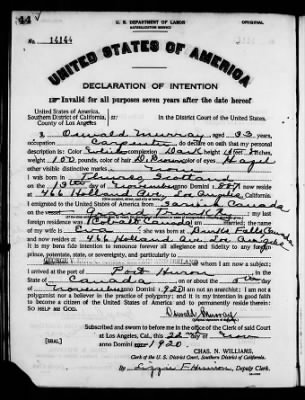 44
U. S. DEPARTMENT OF LABOR
NATURALIZATION SERVICE
ORIGINAL
No. 14144
UNITED STATES OF AMERICA
DECLARATION OF INTENTION
Invalid for all purposes seven years after the date hereof
United States of America,
Southern District of California, ss:
County of Los Angeles
In the District Court of the United States.
I, Oswald Murray, aged 33 years,
occupation Carpenter, do declare on oath that my personal
description is: Color White, complexion Dark, height feet inches,
weight 150 pounds, color of hair D. Brown, color of eyes Hazel
other visible distinctive marks
I was born in Scotland
on the 13th day of November, anno Domini 1887; I now reside
at 466 Holland Ave, Los Angeles, California.
I emigrated to the United States of America from Sarnia, Canada
on the vessel Grand Trunk Ry; my last
foreign residence was; I am married; the name
of my wife is Eva; she was born at Burks Falls, Canada
and now resides at 466 Holland Ave, Los Angeles
It is my bona fide intention to renounce forever all allegiance and fidelity to any foreign
prince, potentate, state, or sovereignty, and particularly to
GEORGE V, of whom I am now a subject;
I arrived at the port of Port Huron, in the
State of Canada, on or about the day
of, anno Domini 1920; I am not an anarchist; I am not a
polygamist nor a believer in the practice of polygamy; and it is my intention in good faith
to become a citizen of the United States of America and to permanently reside therein:
SO HELP ME GOD.
Oswald Murray
Subscribed and sworn to before me in the office of the Clerk of said Court
at Los Angeles, Cal., this 2d day of Nov
[SEAL] anno Domini 1920.
CHAS. N. WILLIAMS,
Clerk of the U. S. District Court, Southern District of California.
By, Deputy Clerk.